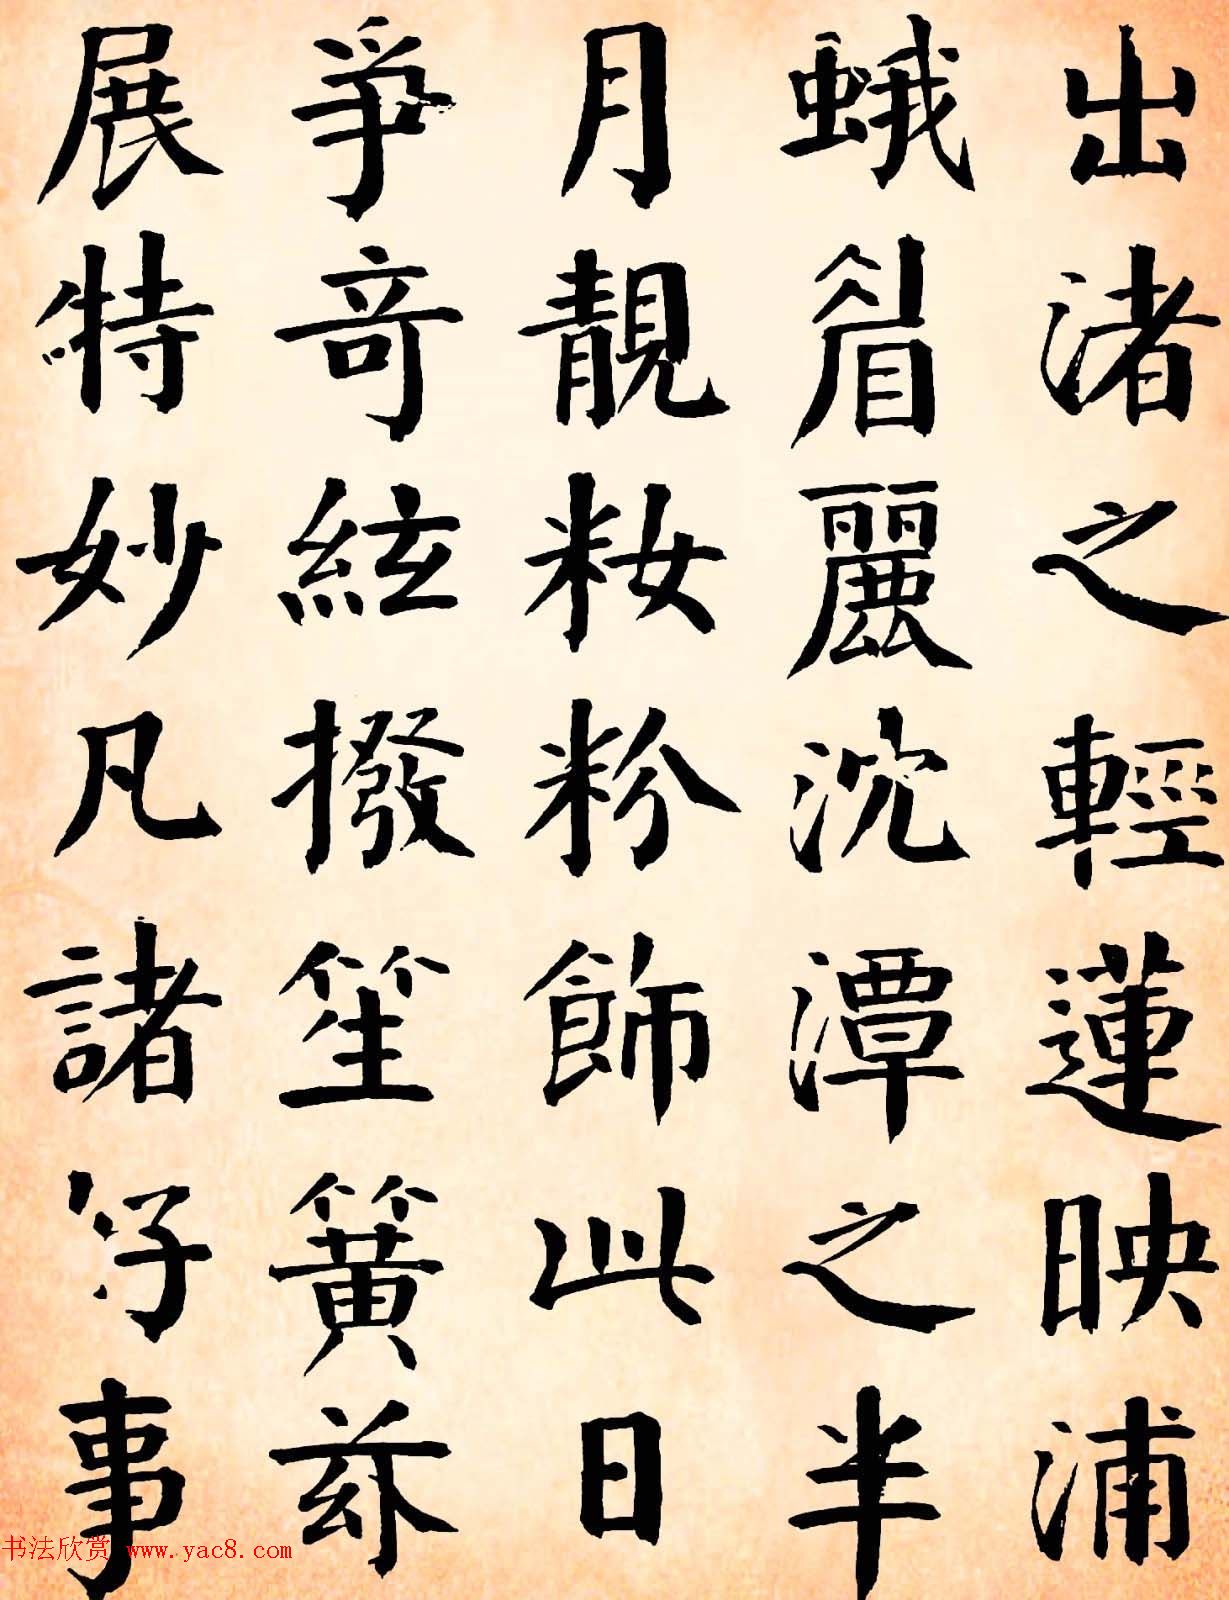 出渚之輕蓮映浦
蛾眉麗沈潭之半
月靚粧粉飾此日
爭奇絃撥笙簧茲
展特妙凡諸好事
书法欣赏 www.yac8.com